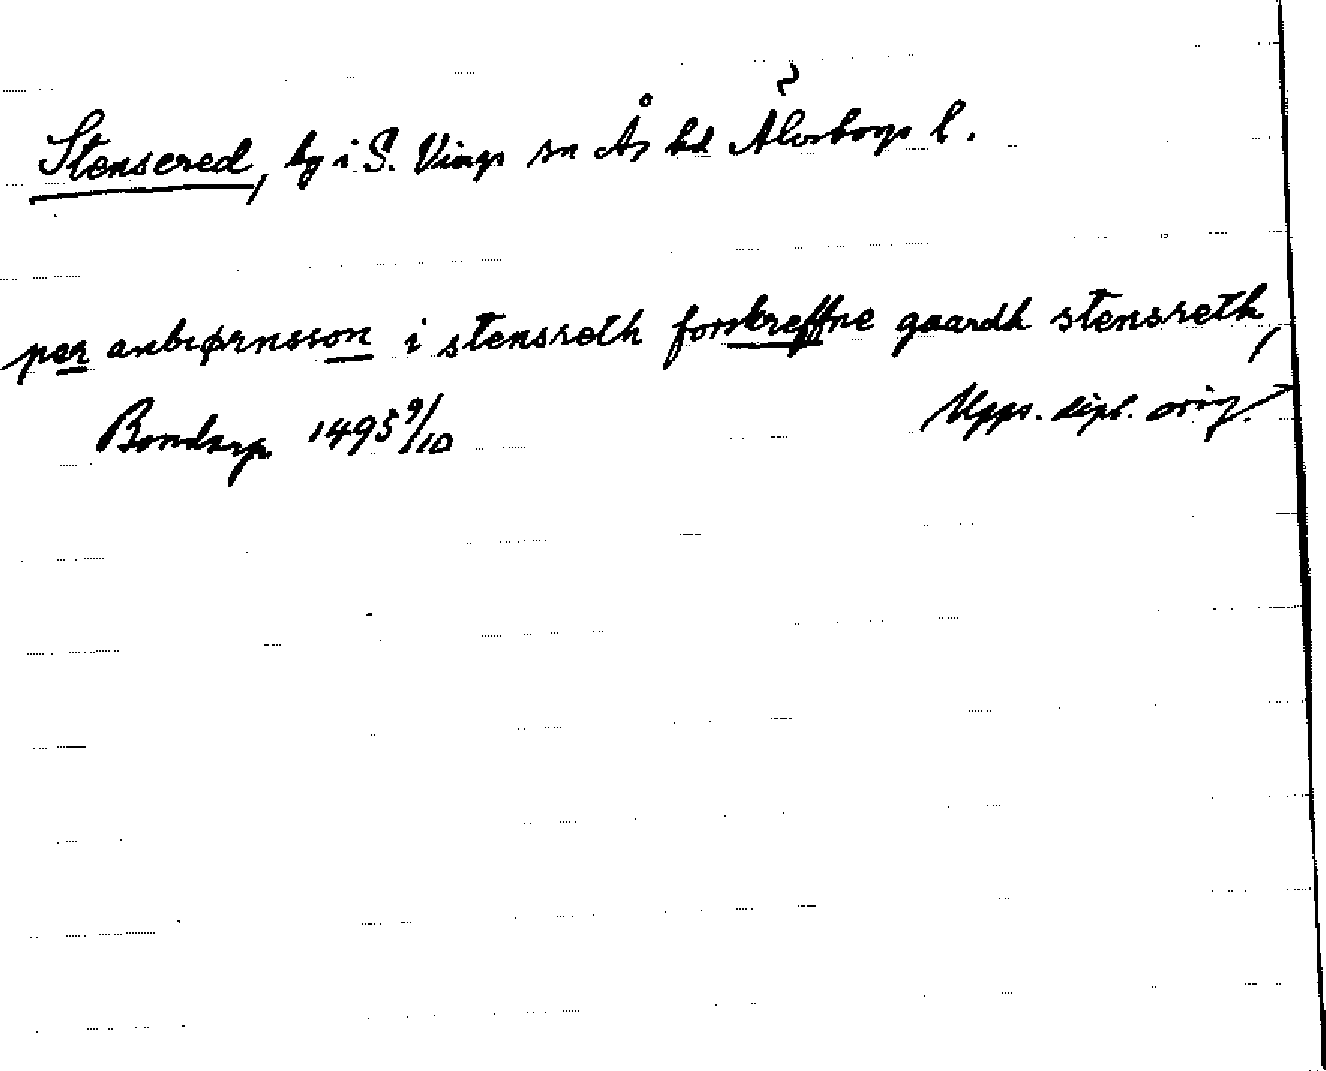 Stensered, by i S. Vings sn Ås hd Älvsborgs l.
per anbiørnsson i stensreth forskreffne gaardh stensreth,
Bondarp 1495 9/10 Upps. dipl. orig.